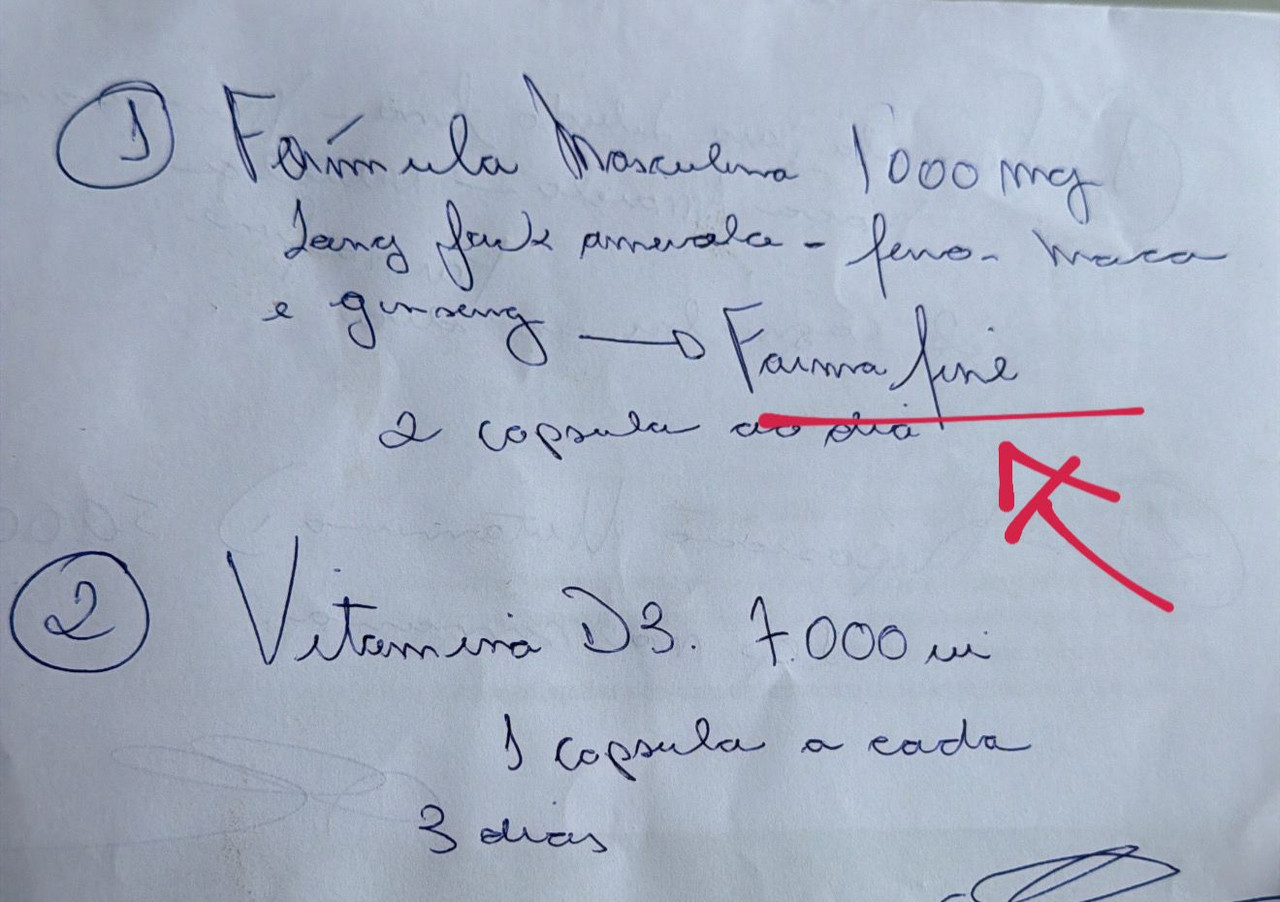 1 Fórmula Masculina 1000 mg
Long Jack amarela - feno - maca
e ginseng → Farma fine
2 capsula ao dia
2 Vitamina D3. 7.000 ui
1 capsula a cada
3 dias